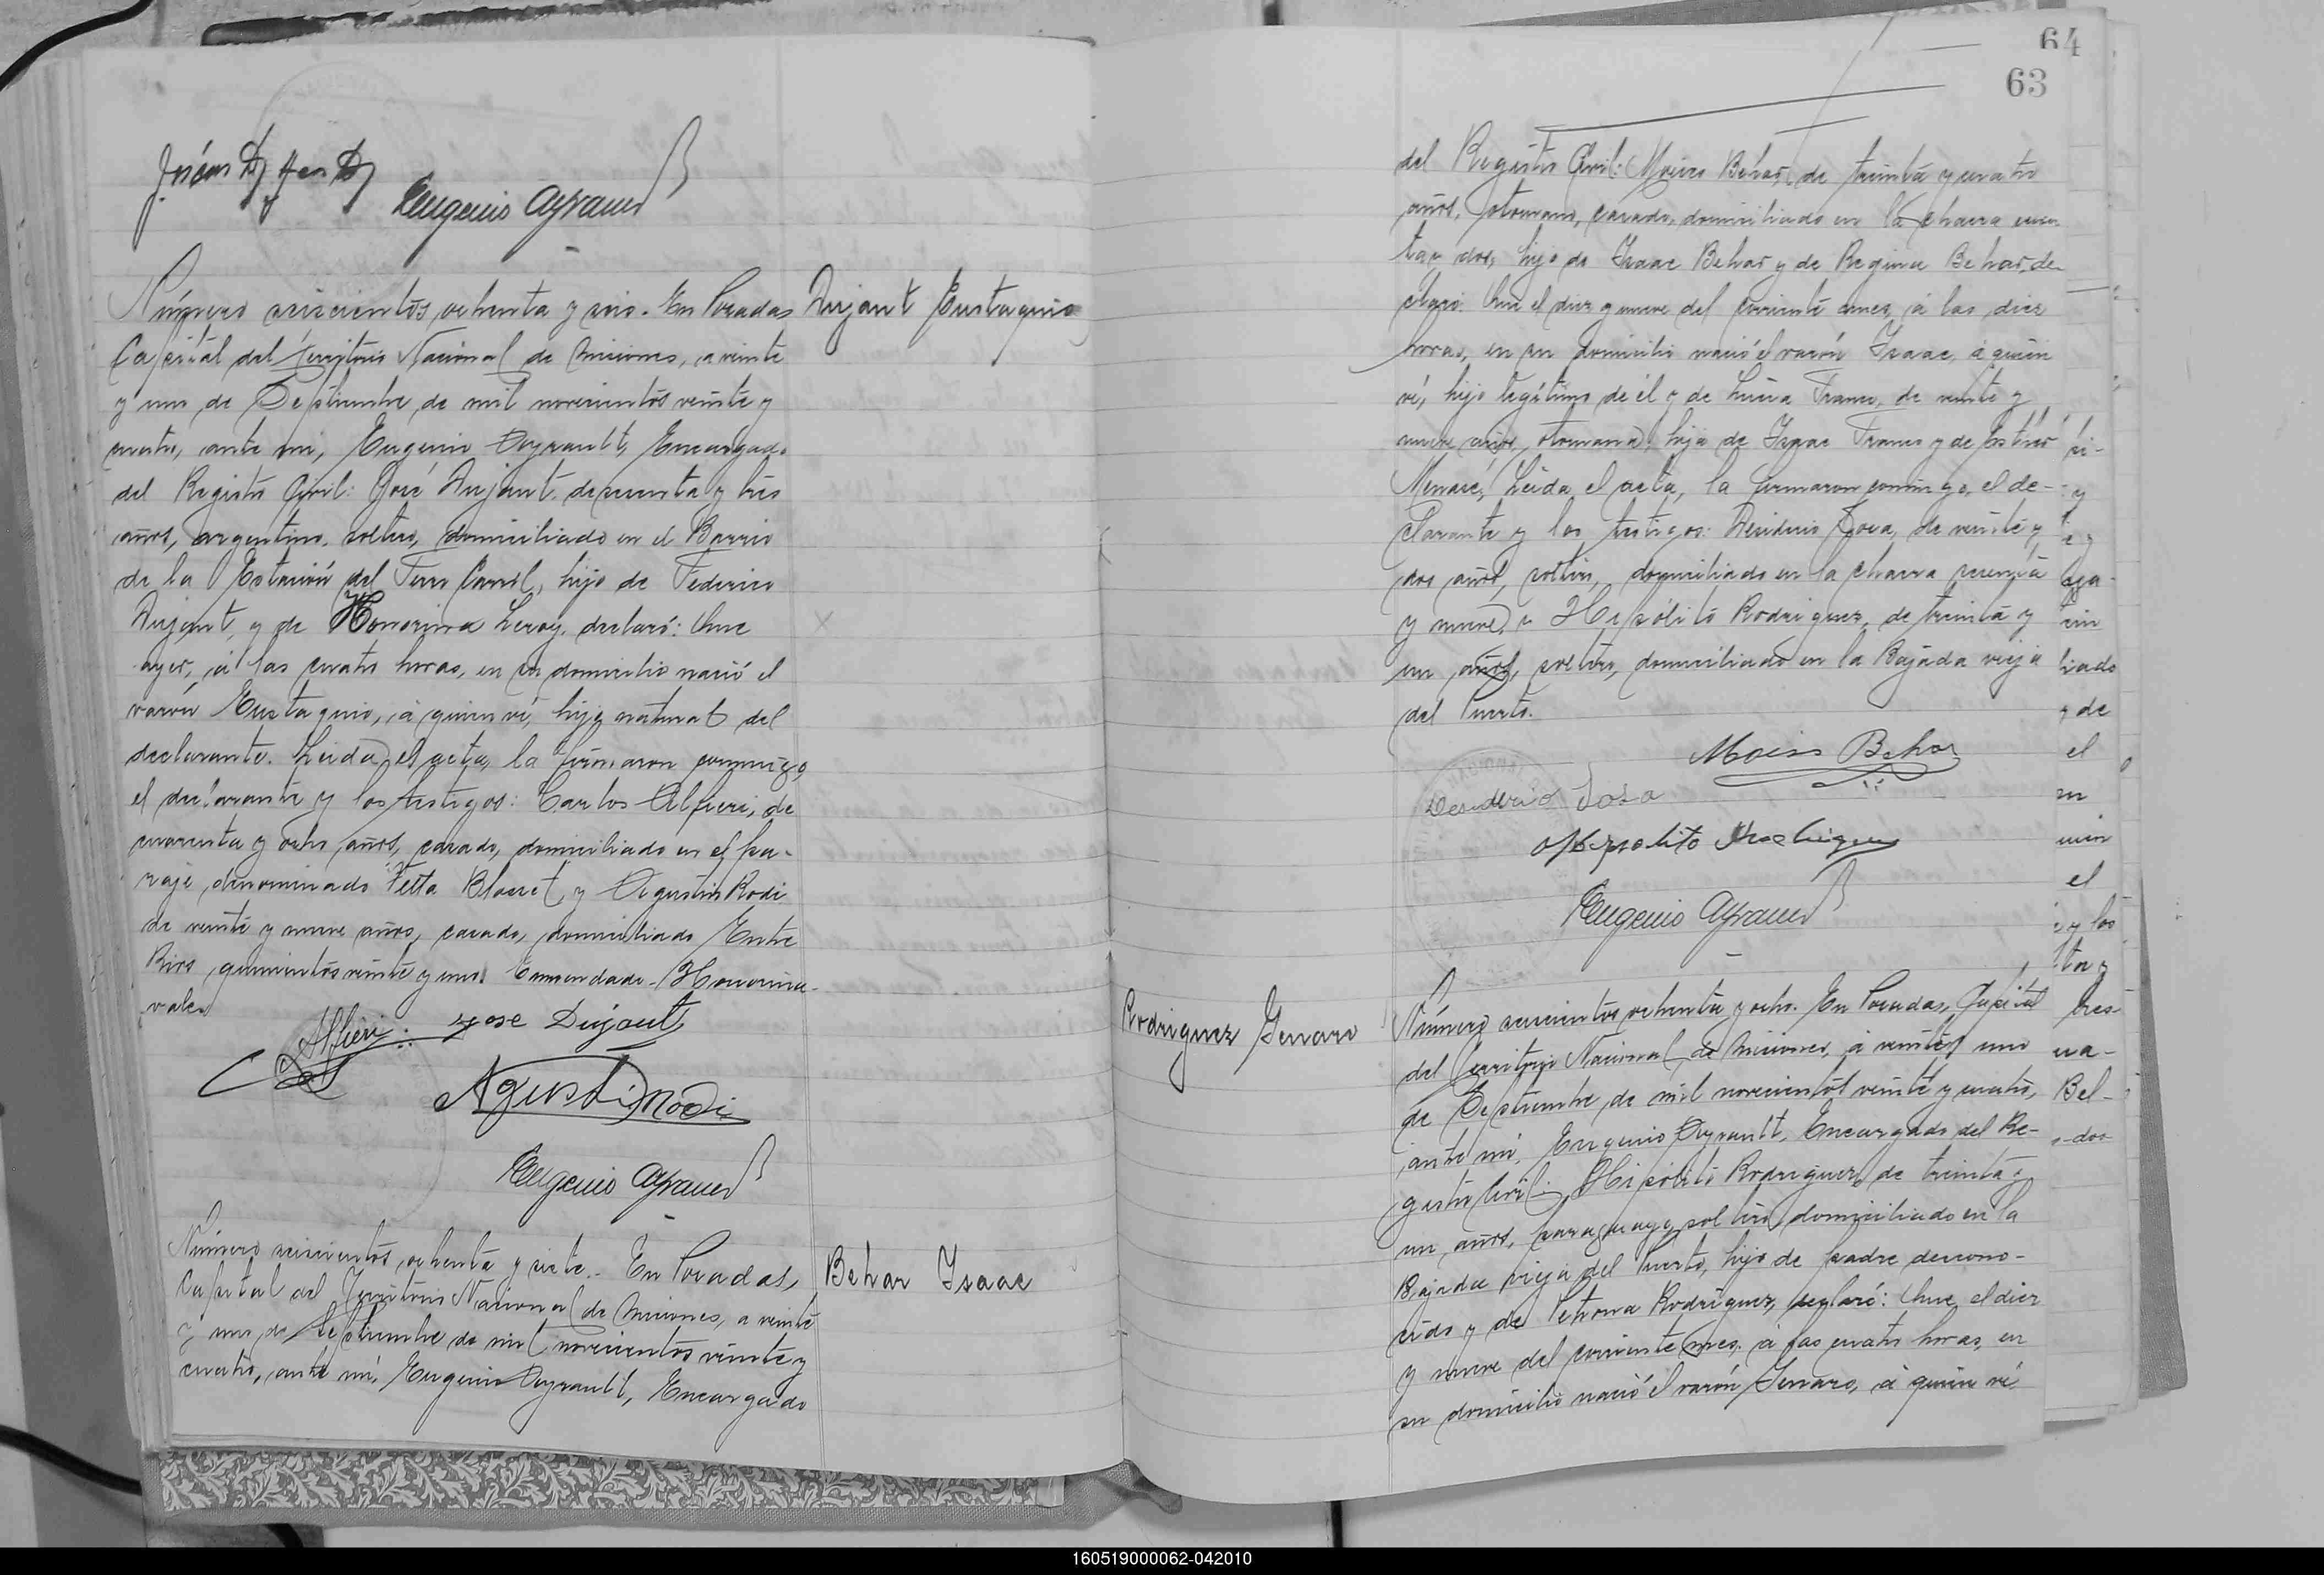 Eugenio Ayrault
Número seiscientos ochenta y seis. En Posadas
Dujant Eustaquio
Capital del Territorio Nacional de Misiones, a veinte
y uno de Septiembre de mil novecientos veinte y
cuatro, ante mí, Eugenio Ayrault, Encargado
del Registro Civil: José Dujant, de sesenta y tres
años, argentino, soltero, domiciliado en el Barrio
de la Estación del Ferro Carril, hijo de Federico
Dujant, y de Honorina Leroy, declaró: Que
ayer, á las cuatro horas, en su domicilio nació el
varón Eustaquio, á quien ví, hijo natural del
declarante. Leida el acta, la firmaron conmigo,
el declarante y los testigos: Carlos Alfieri, de
cuarenta y ocho años, casado, domiciliado en el pa-
raje denominado Villa Blosset, y Agustin Rodi
de veinte y nueve años, casado, domiciliado Entre
Rios, quinientos veinte y uno. Enmendado-Honorina-
vale
Alfieri
Jose Dujant
Agustin Rodi
Eugenio Ayrault
Número seiscientos ochenta y siete.- En Posadas,
Behar Isaac
Capital del Territorio Nacional de Misiones, a veinte
y uno de Septiembre de mil novecientos veinte y
cuatro, ante mí, Eugenio Ayrault, Encargado
64
63
del Registro Civil: Moises Behar, de treinta y cuatro
años, otomano, casado, domiciliado en la chacra cuen-
ta y dos, hijo de Isaac Behar y de Regina Behar, de-
claró: Que el diez y nueve del corriente mes, á las diez
horas, en su domicilio nació el varón Isaac, á quien
ví, hijo legítimo de él y de Luisa Franco, de veinte y
nueve años, otomana, hija de Isaac Franco y de Ester
Menasé. Leida el acta, la firmaron conmigo, el de-
clarante y los testigos: Desiderio Sosa, de veinte y
dos años, soltero, domiciliado en la chacra sesenta
y nueve, é Hipólito Rodriguez, de treinta y
un años, soltero, domiciliado en la Bajada vieja
del Puerto.
Moises Behar
Desiderio Sosa
Hipolito Rodriguez
Eugenio Ayrault
Rodriguez Genaro
Número seiscientos ochenta y ocho. En Posadas, Capital
del Territorio Nacional de Misiones, á veinte y uno
de Septiembre de mil novecientos veinte y cuatro,
ante mí, Eugenio Ayrault, Encargado del Re-
gistro Civil: Hipólito Rodriguez, de treinta y
un años, paraguayo, soltero, domiciliado en la
Bajada vieja del Puerto, hijo de padre descono-
cido y de Petrona Rodriguez, declaró: Que el diez
y nueve del corriente mes, á las cuatro horas, en
su domicilio nació el varón Genaro, á quien ví
y de
el
su
el
y los
tres-
ua-
Bel-
160519000062-042010